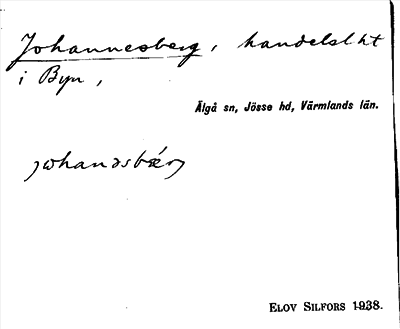 Johannesberg, handelsl.ht
i Byn,
Älgå sn, Jösse hd, Värmlands län.
Elov Silfors 1938.